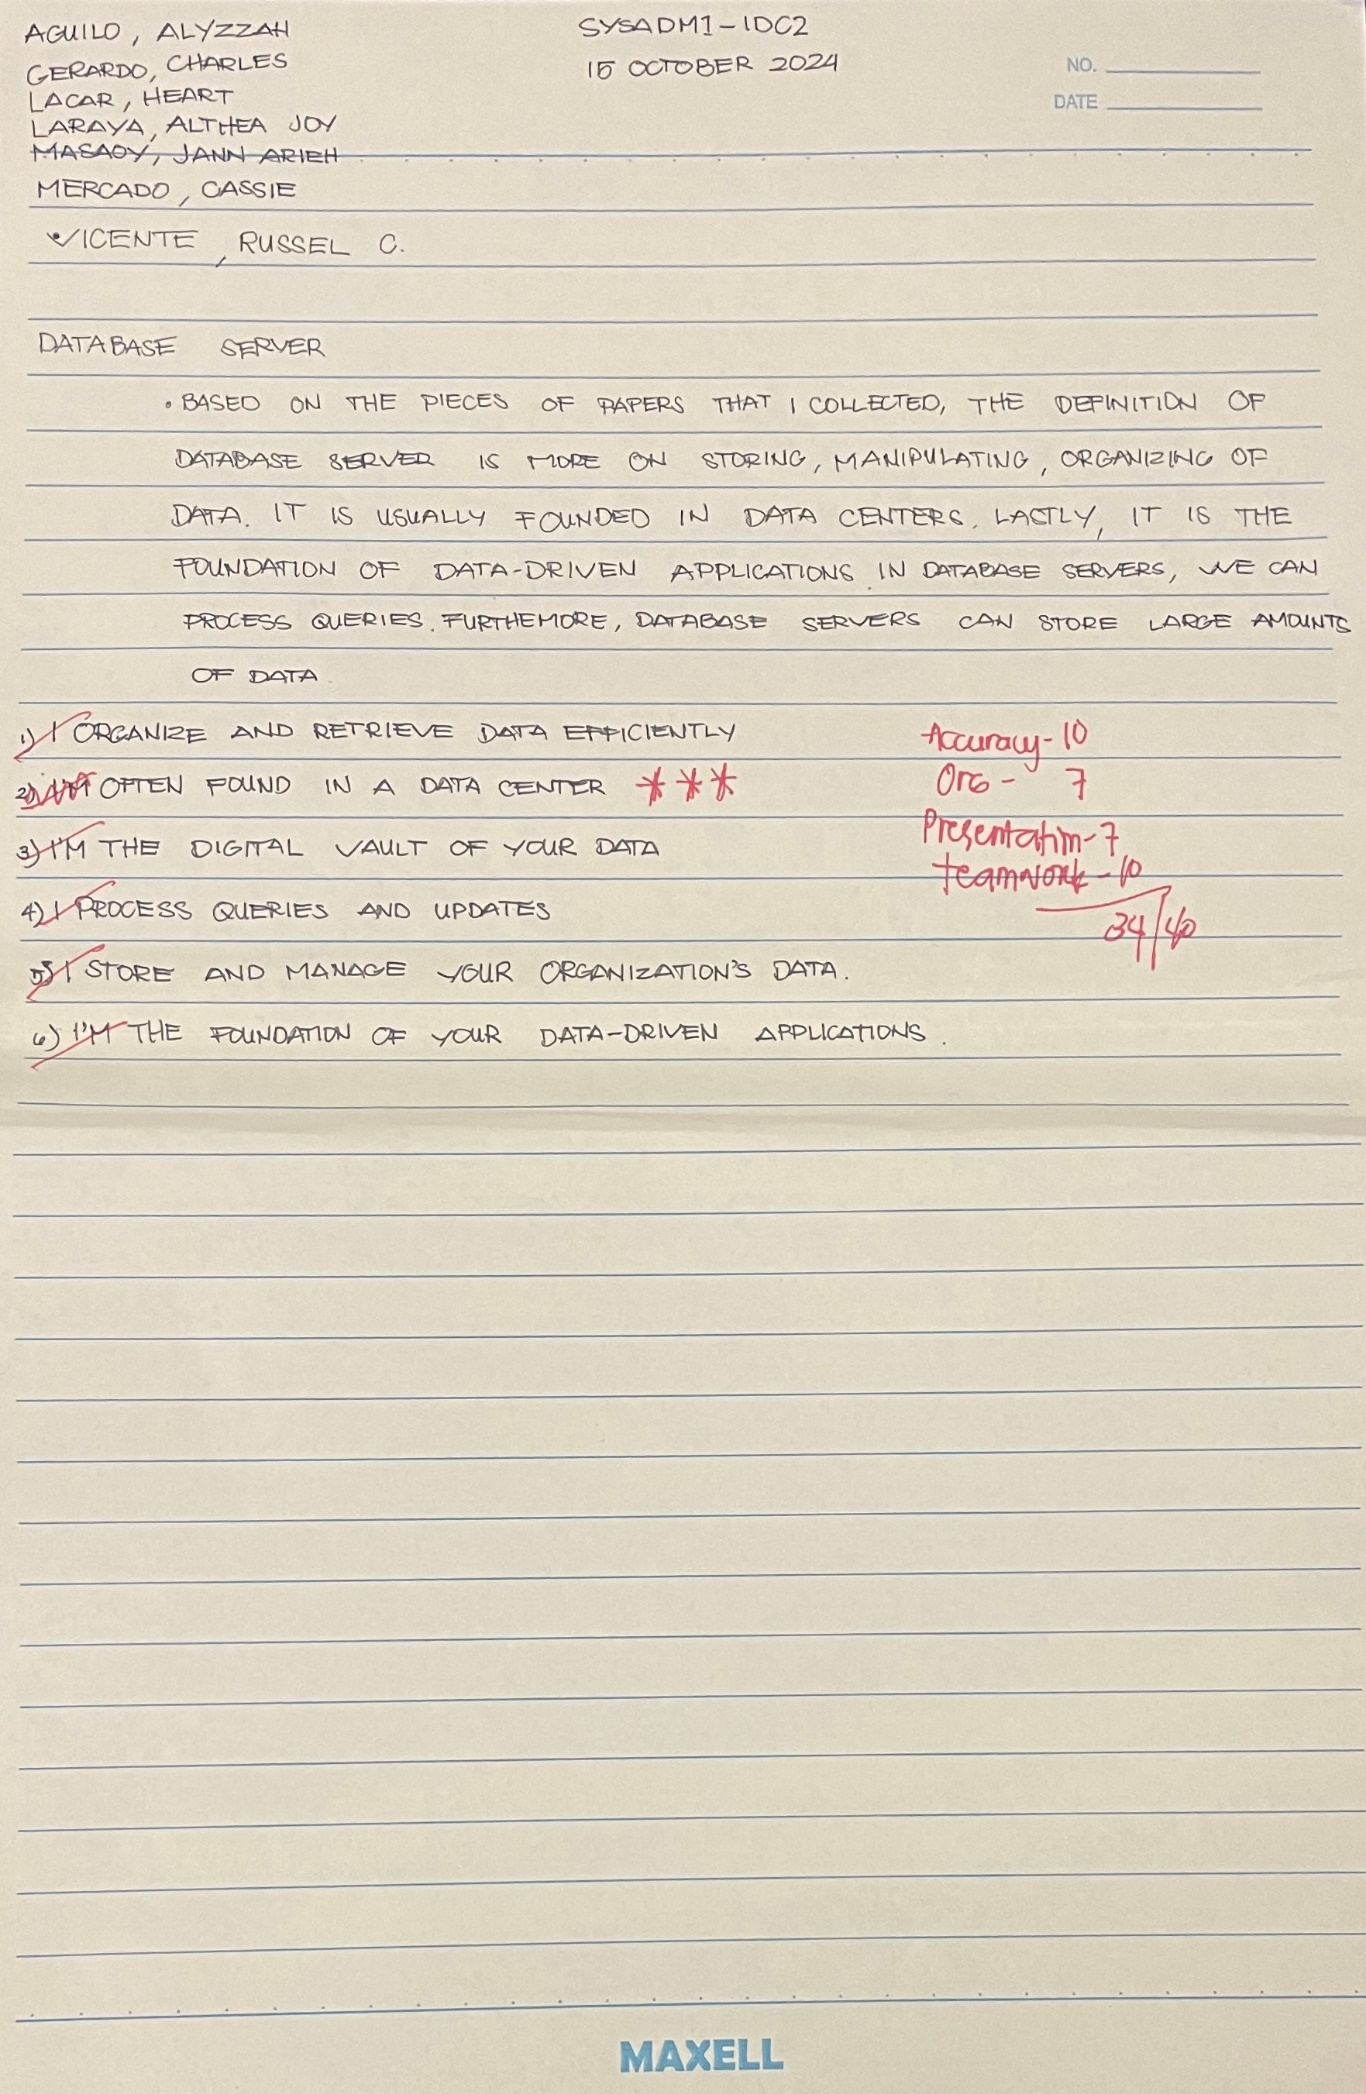 AGUILO, ALYZZAH
GERARDO, CHARLES
LACAR, HEART
LARAYA, ALTHEA JOY
MASAOY, JANN ARIEH
MERCADO, CASSIE
VICENTE, RUSSEL C.
SYSADM1-IDC2
15 OCTOBER 2024
NO.
DATE
DATABASE SERVER
• BASED ON THE PIECES OF PAPERS THAT I COLLECTED, THE DEFINITION OF
DATABASE SERVER IS MORE ON STORING, MANIPULATING, ORGANIZING OF
DATA. IT IS USUALLY FOUNDED IN DATA CENTERS. LASTLY, IT IS THE
FOUNDATION OF DATA-DRIVEN APPLICATIONS. IN DATABASE SERVERS, WE CAN
PROCESS QUERIES. FURTHEMORE, DATABASE SERVERS CAN STORE LARGE AMOUNTS
OF DATA.
1) I ORGANIZE AND RETRIEVE DATA EFFICIENTLY
2) I'M OFTEN FOUND IN A DATA CENTER ***
3) I'M THE DIGITAL VAULT OF YOUR DATA
4) I PROCESS QUERIES AND UPDATES
5) I STORE AND MANAGE YOUR ORGANIZATION'S DATA.
6) I'M THE FOUNDATION OF YOUR DATA-DRIVEN APPLICATIONS.
Accuracy-10
Org - 7
Presentation-7
teamwork-10
34/40
MAXELL